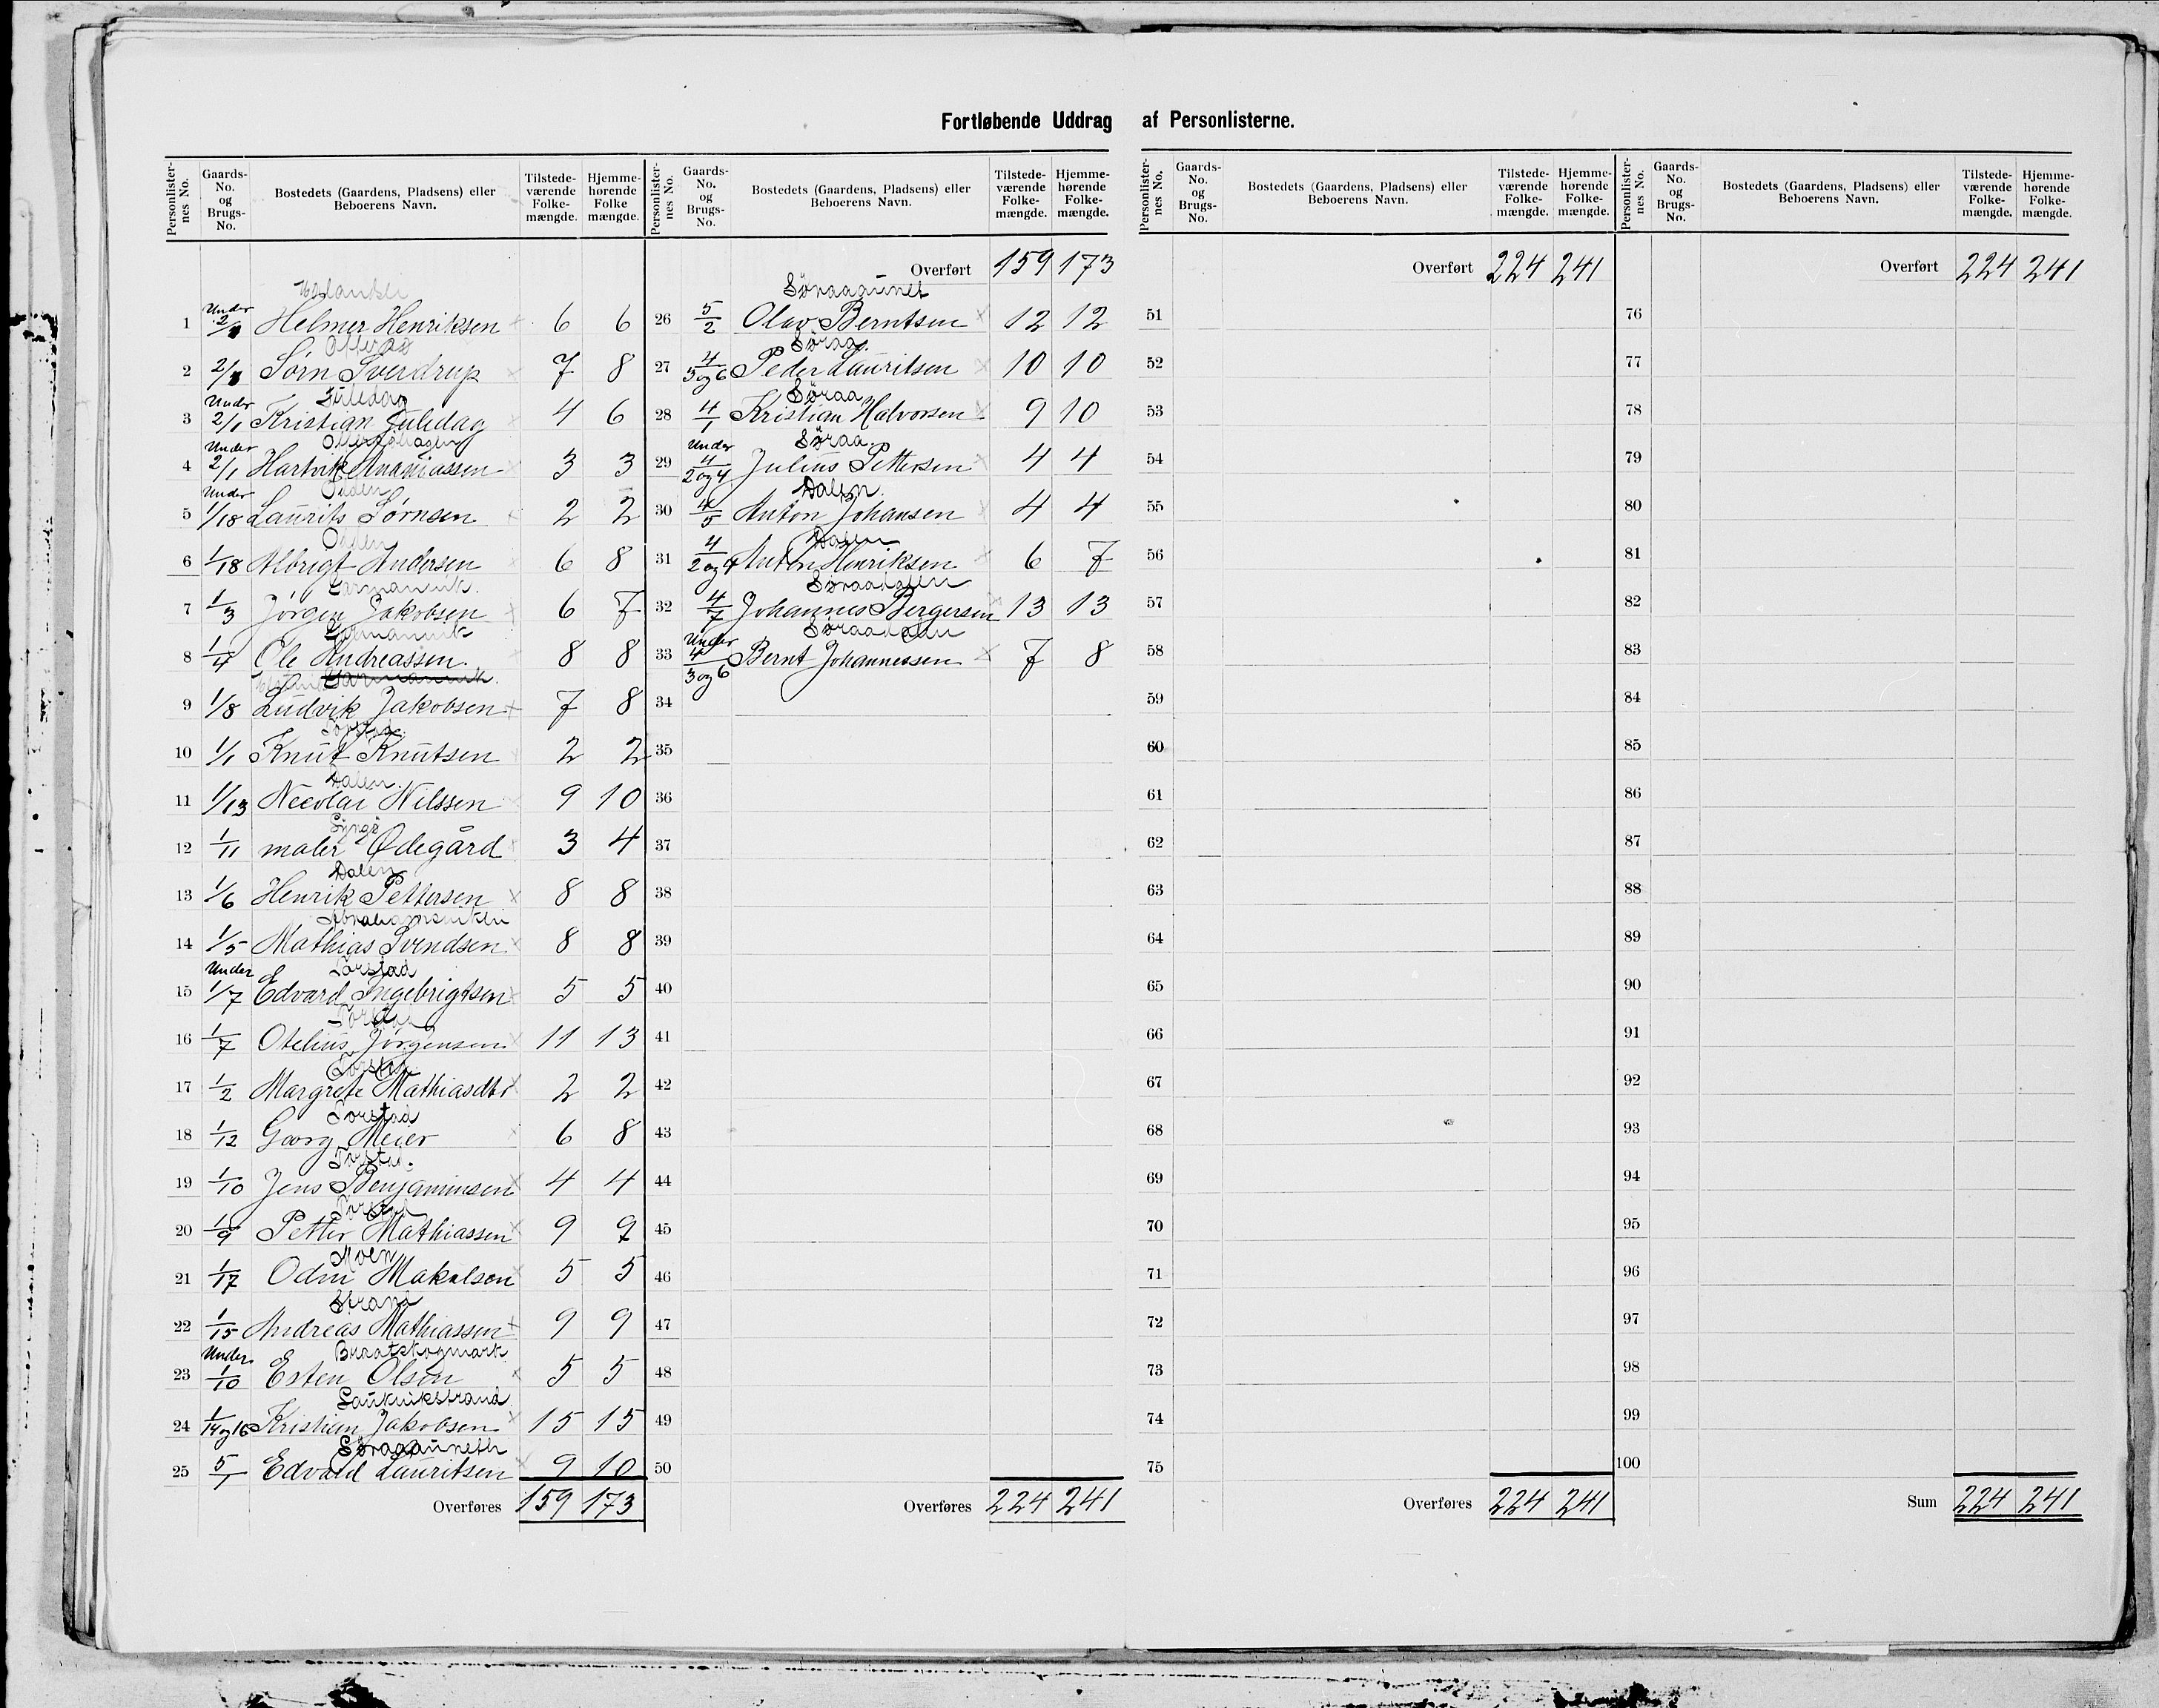 Fortløbende Uddrag af Personlisterne.
Personlisternes No. Gaards-No. og Brugs-No. Bostedets (Gaardens, Pladsens) eller Beboerens Navn. Tilstedeværende Folkemængde. Hjemmehørende Folkemængde.
1 Under 2/1 Helmer Henriksen 6 6
2 2/1 Sørn Sverdrup 7 8
Juledag
3 Under 2/1 Kristian Juledag 4 6
4 Under 2/1 Hartvik Ananiassen 3 3
Odden
5 Under 1/18 Laurits Sørnsen 2 2
Odden
6 1/18 Albrigt Andersen 6 8
7 1/3 Jørgen Jakobsen 6 7
8 1/4 Ole Andreassen 8 8
9 1/8 Ludvik Jakobsen 7 8
10 1/1 Knut Knutsen 2 2
Dalen
11 1/13 Necolai Nilssen 9 10
12 1/11 maler Ødegård 3 4
Dalen
13 1/6 Henrik Pettersen 8 8
14 1/5 Mathias Svendsen 8 8
Torstad
15 Under 1/7 Edvard Ingebrigtsen 5 5
16 1/7 Otelius Jørgensen 11 13
17 1/2 Margrete Mathiasdtr 2 2
Torstad
18 1/12 Georg Meier 6 8
Torstad
19 1/10 Jens Benjaminsen 4 4
Torstad
20 1/9 Petter Mathiassen 9 9
Moen
21 1/17 Odin Makalsen 5 5
Strand
22 1/15 Andreas Mathiassen 9 9
Buratskogmark
23 Under 1/10 Esten Olsen 5 5
Laukvikstrand
24 1/14 og 16 Kristian Jakobsen 15 15
Søraaauneth
25 5/1 Edvard Lauritsen 9 10
Overføres 159 173
Overført 159 173
Søraaaunet
26 5/2 Olav Berntsen 12 12
Søraa.
27 4/5 og 6 Peder Lauritsen 10 10
Søraa
28 4/1 Kristian Halvorsen 9 10
Søraa.
29 Under 4/2 og 4 Julius Pettersen 4 4
Dalen
30 4/5 Anton Johansen 4 4
Dalen
31 4/2 og 4 Anton Henriksen 6 7
Søraadalen
32 4/7 Johannes Bergersen 13 13
Søraadalen
33 Under 4/3 og 6 Bernt Johannessen 7 8
34
35
36
37
38
39
40
41
42
43
44
45
46
47
48
49
50
Overføres 224 241
Personlisternes No. Gaards-No. og Brugs-No. Bostedets (Gaardens, Pladsens) eller Beboerens Navn. Tilstedeværende Folkemængde. Hjemmehørende Folkemængde.
Overført 224 241
51
52
53
54
55
56
57
58
59
60
61
62
63
64
65
66
67
68
69
70
71
72
73
74
75
Overføres 224 241
Overført 224 241
76
77
78
79
80
81
82
83
84
85
86
87
88
89
90
91
92
93
94
95
96
97
98
99
100
Sum 224 241